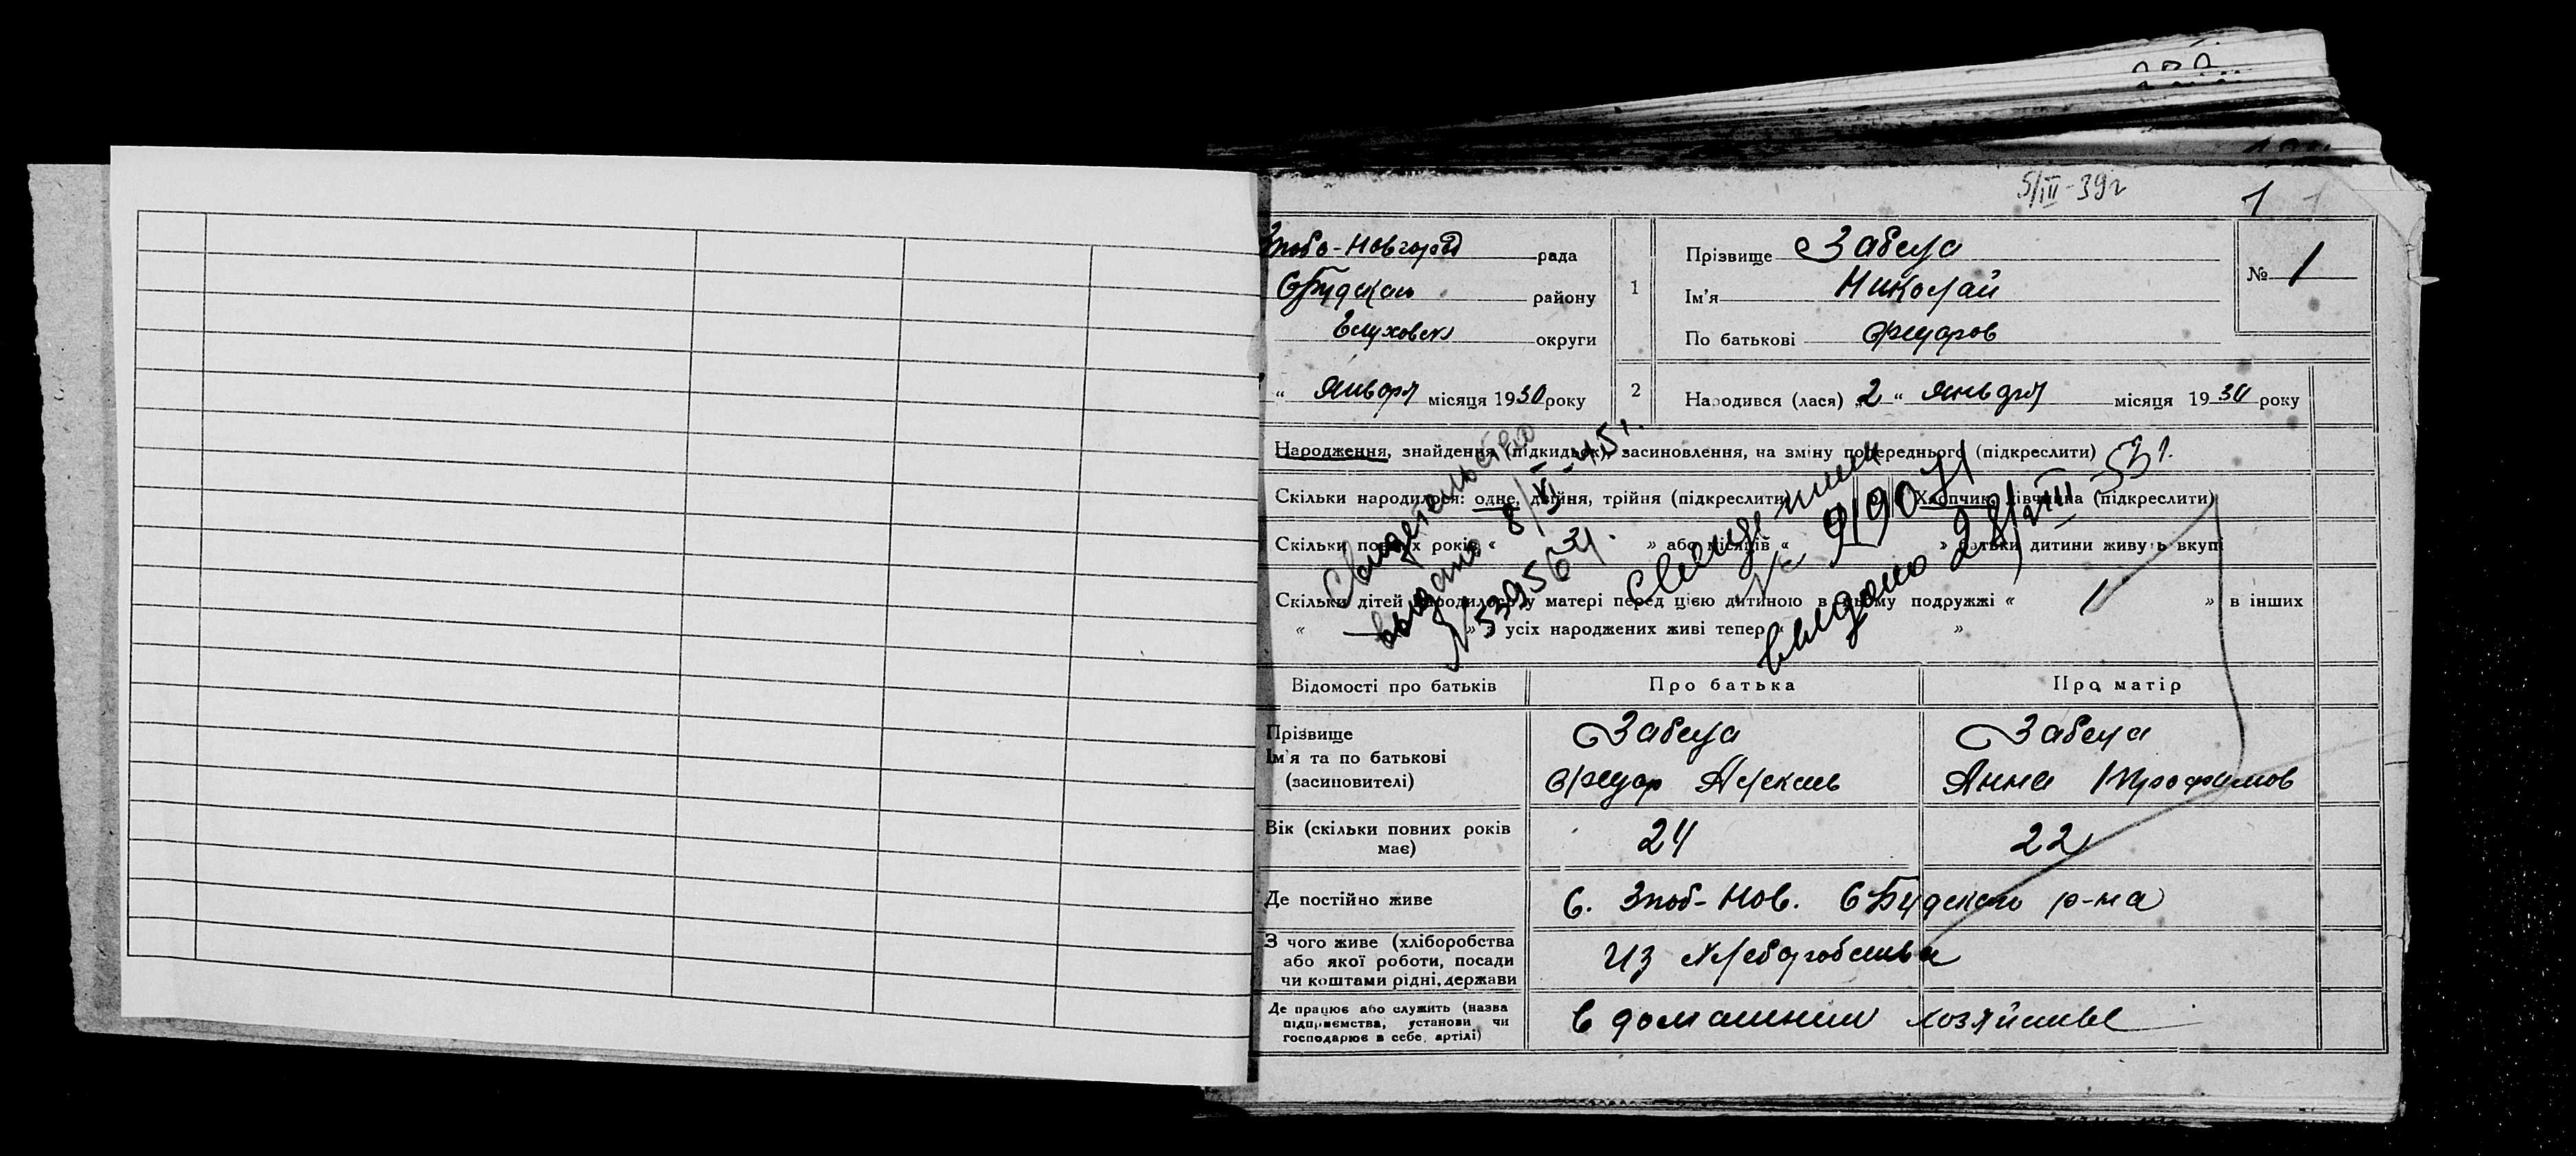 5/III-39г
1
Зноб-Новгород рада
СБудского району
Глуховск округи
" января місяця 1930 року
1
Прізвище Забела
Ім'я Николай
По батькові Федоров
№ 1
2
Народився (лася) "2" января місяця 1930 року
Народження, знайдення (підкидьок), засиновлення, на зміну попереднього (підкреслити)
Скільки народилося: одне, двійня, трійня (підкреслити) Хлопчик, дівчина (підкреслити)
Скільки повних років « » або місяців « » батьки дитини живуть вкупі
Скільки дітей народилося у матері перед цією дитиною в цьому подружжі « 1 » в інших
« » усіх народжених живі тепер « »
Свидетельство
выдано 8/VI-45г.
№ 539563
№ 919071
выдано 28/VIII 53г.
Відомості про батьків
Про батька
Про матір
Прізвище
Ім'я та по батькові
(засиновителі)
Забела
Федор Алексеев
Забела
Анна Трофимов
Вік (скільки повних років
має)
24
22
Де постійно живе
С. Зноб-Нов. СБудского р-на
З чого живе (хліборобства
або якої роботи, посади
чи коштами рідні, держави
Из хлеборобства
Де працює або служить (назва
підприємства, установи чи
господарює в себе, артілі)
в домашнем хозяйстве